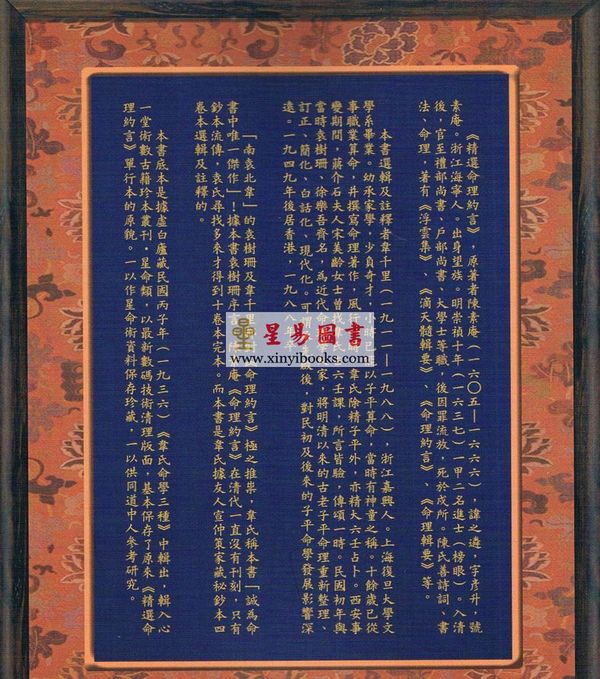 《精選命理約言》，原著者陳素庵（一六〇五—一六六六），諱之遴，字彥升，號
素庵。浙江海寧人。出身望族。明崇禎十年（一六三七）一甲二名進士（榜眼）。入清
後，官至禮部尚書、戶部尚書、大學士等職，後因罪流放，死於戍所。陳氏善詩詞、書
法、命理，著有《浮雲集》、《滴天髓輯要》、《命理約言》、《命理輯要》等。
本書選輯及註釋者韋千里（一九一一—一九八八），浙江嘉興人。上海復旦大學文
學系畢業。幼承家學，少負奇才，小時已以子平算命，當時有神童之稱。十餘歲已從
事職業算命，并撰寫命理著作，風行韋氏除精子平外，亦精大六壬占卜。西安事
變期間，蔣介石夫人宋美齡女士曾找六壬課，所言皆驗，傳頌一時。民國初年與
當時袁樹珊、徐樂吾齊名，為近代命家，將明清以來的古老子平命理重新整理、
訂正、簡化、白話化、現代化。可後，對民初及後來的子平命學發展影響深
遠。一九四九年後居香港，一九八八年
「南袁北韋」的袁樹珊及韋千里《命理約言》極之推崇，韋氏稱本書「誠為命
書中唯一傑作」！據本書袁樹珊序庵《命理約言》在清代一直沒有刊刻，只有
鈔本流傳，袁氏尋找多來才得到十卷本完本。而本書是韋氏據友人宣仲策家藏秘鈔本四
卷本選輯及註釋的。
本書底本是據虛白廬藏民國丙子年（一九三六）《韋氏命學三種》中輯出，輯入心
一堂術數古籍珍本叢刊·星命類，以最新數碼技術清理版面，基本保存了原來《精選命
理約言》單行本的原貌。一以作星命術資料保存珍藏，一以供同道中人參考研究。
星易圖書
www.xinyibooks.com